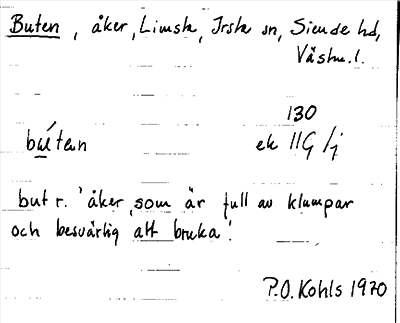 Buten, åker, Limsta, Irsta sn, Siende hd,
Västm. l.
130
bu̱´tan ek 11G /j
but r. 'åker, som är full av klumpar
och besvärlig att bruka'.
P.O. Kohls 1970